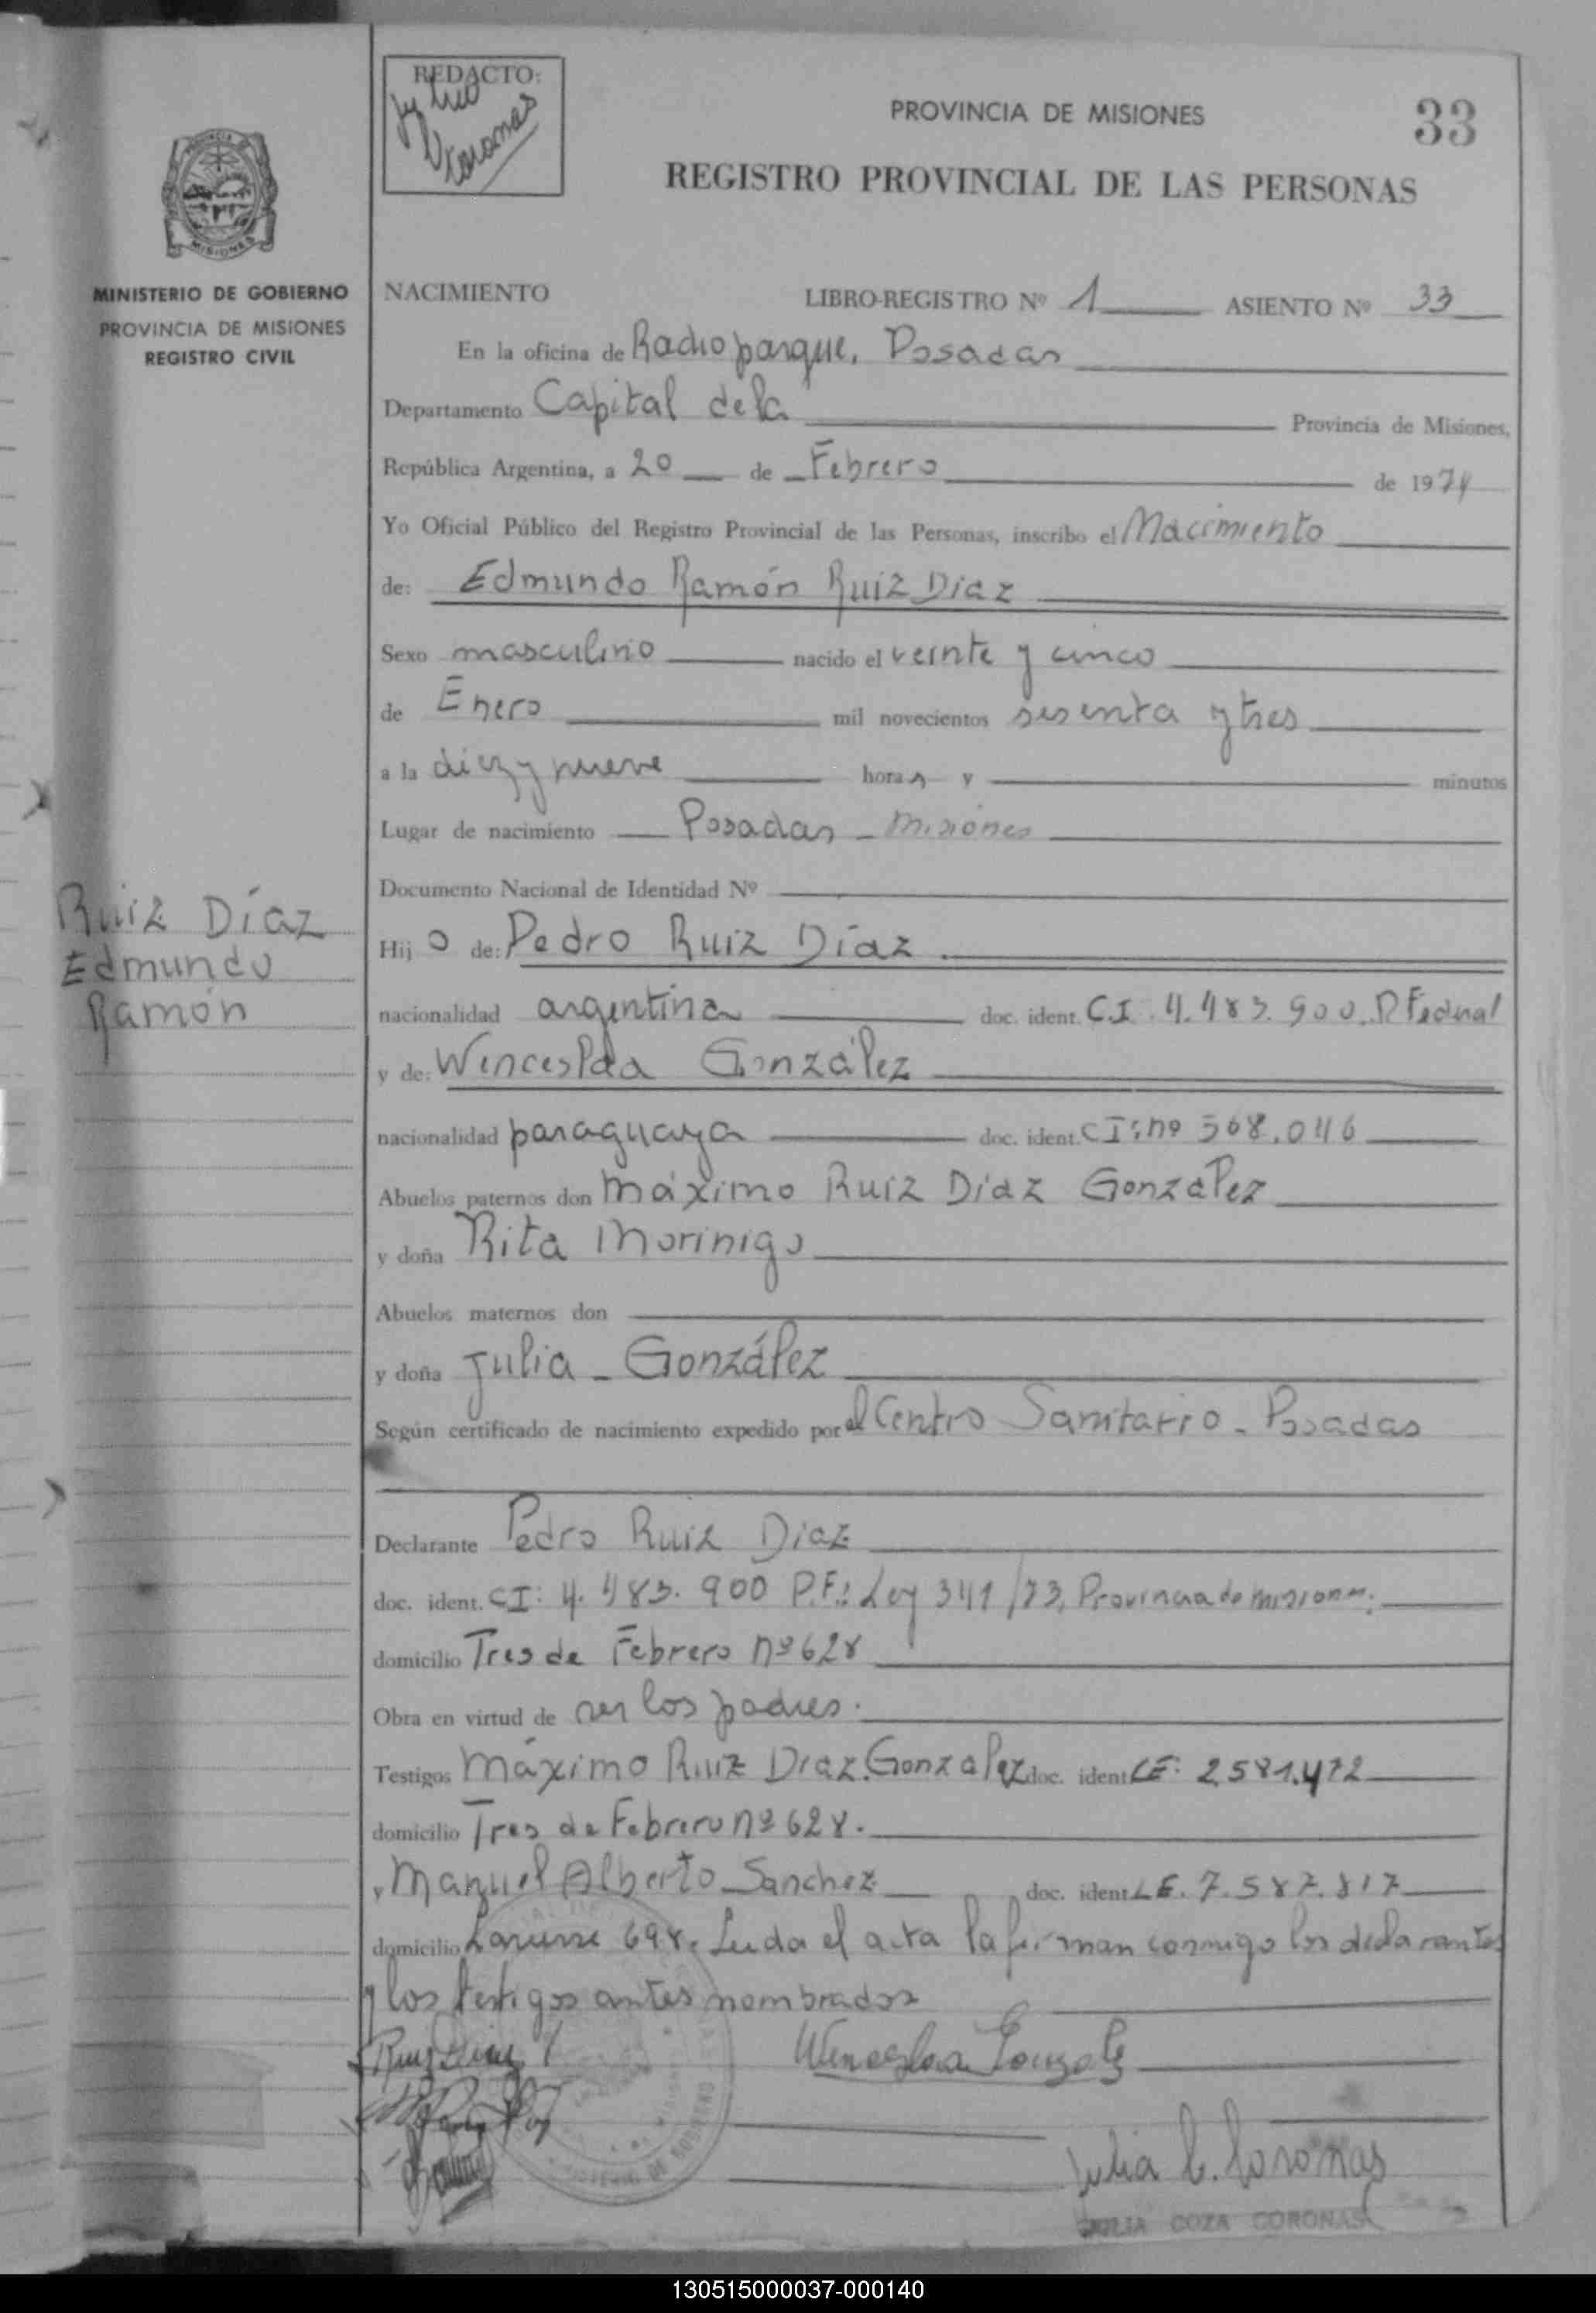 REDACTO:
Julia
Coronas
PROVINCIA DE MISIONES
33
REGISTRO PROVINCIAL DE LAS PERSONAS
MISIONES
MINISTERIO DE GOBIERNO
PROVINCIA DE MISIONES
REGISTRO CIVIL
NACIMIENTO LIBRO-REGISTRO Nº 1 ASIENTO Nº 33
En la oficina de Radioparque, Posadas
Departamento Capital de la Provincia de Misiones,
República Argentina, a 20 de Febrero de 1974
Yo Oficial Público del Registro Provincial de las Personas, inscribo el Nacimiento
de: Edmundo Ramón Ruiz Diaz
Sexo masculino nacido el veinte y cinco
de Enero mil novecientos sesenta y tres
a la diez y nueve horas y minutos
Lugar de nacimiento Posadas - Misiones
Documento Nacional de Identidad Nº
Ruiz Díaz
Edmundo
Ramón
Hijo de: Pedro Ruiz Díaz
nacionalidad argentina doc. ident. C.I. 4.483.900. P. Federal
y de: Wenceslaa González
nacionalidad paraguaya doc. ident. CI: nº 568.046
Abuelos paternos don Máximo Ruiz Diaz González
y doña Rita Morinigo
Abuelos maternos don
y doña Julia - González
Según certificado de nacimiento expedido por el Centro Sanitario - Posadas
Declarante Pedro Ruiz Diaz
doc. ident. CI: 4.483.900 P.F.: Ley 341/73, Provincia de Misiones.
domicilio Tres de Febrero nº 628
Obra en virtud de ser los padres.
Testigos Máximo Ruiz Diaz Gonzalez doc. ident. LE: 2.581.472
domicilio Tres de Febrero nº 628.
y Manuel Alberto Sanchez doc. ident. L.E. 7.587.817
domicilio 698. Leida el acta la firman conmigo los declarantes
y los testigos antes nombrados
Ruiz Diaz
Wenceslaa Gonzalez
Julia C. Coronas
JULIA COZA CORONAS
130515000037-000140